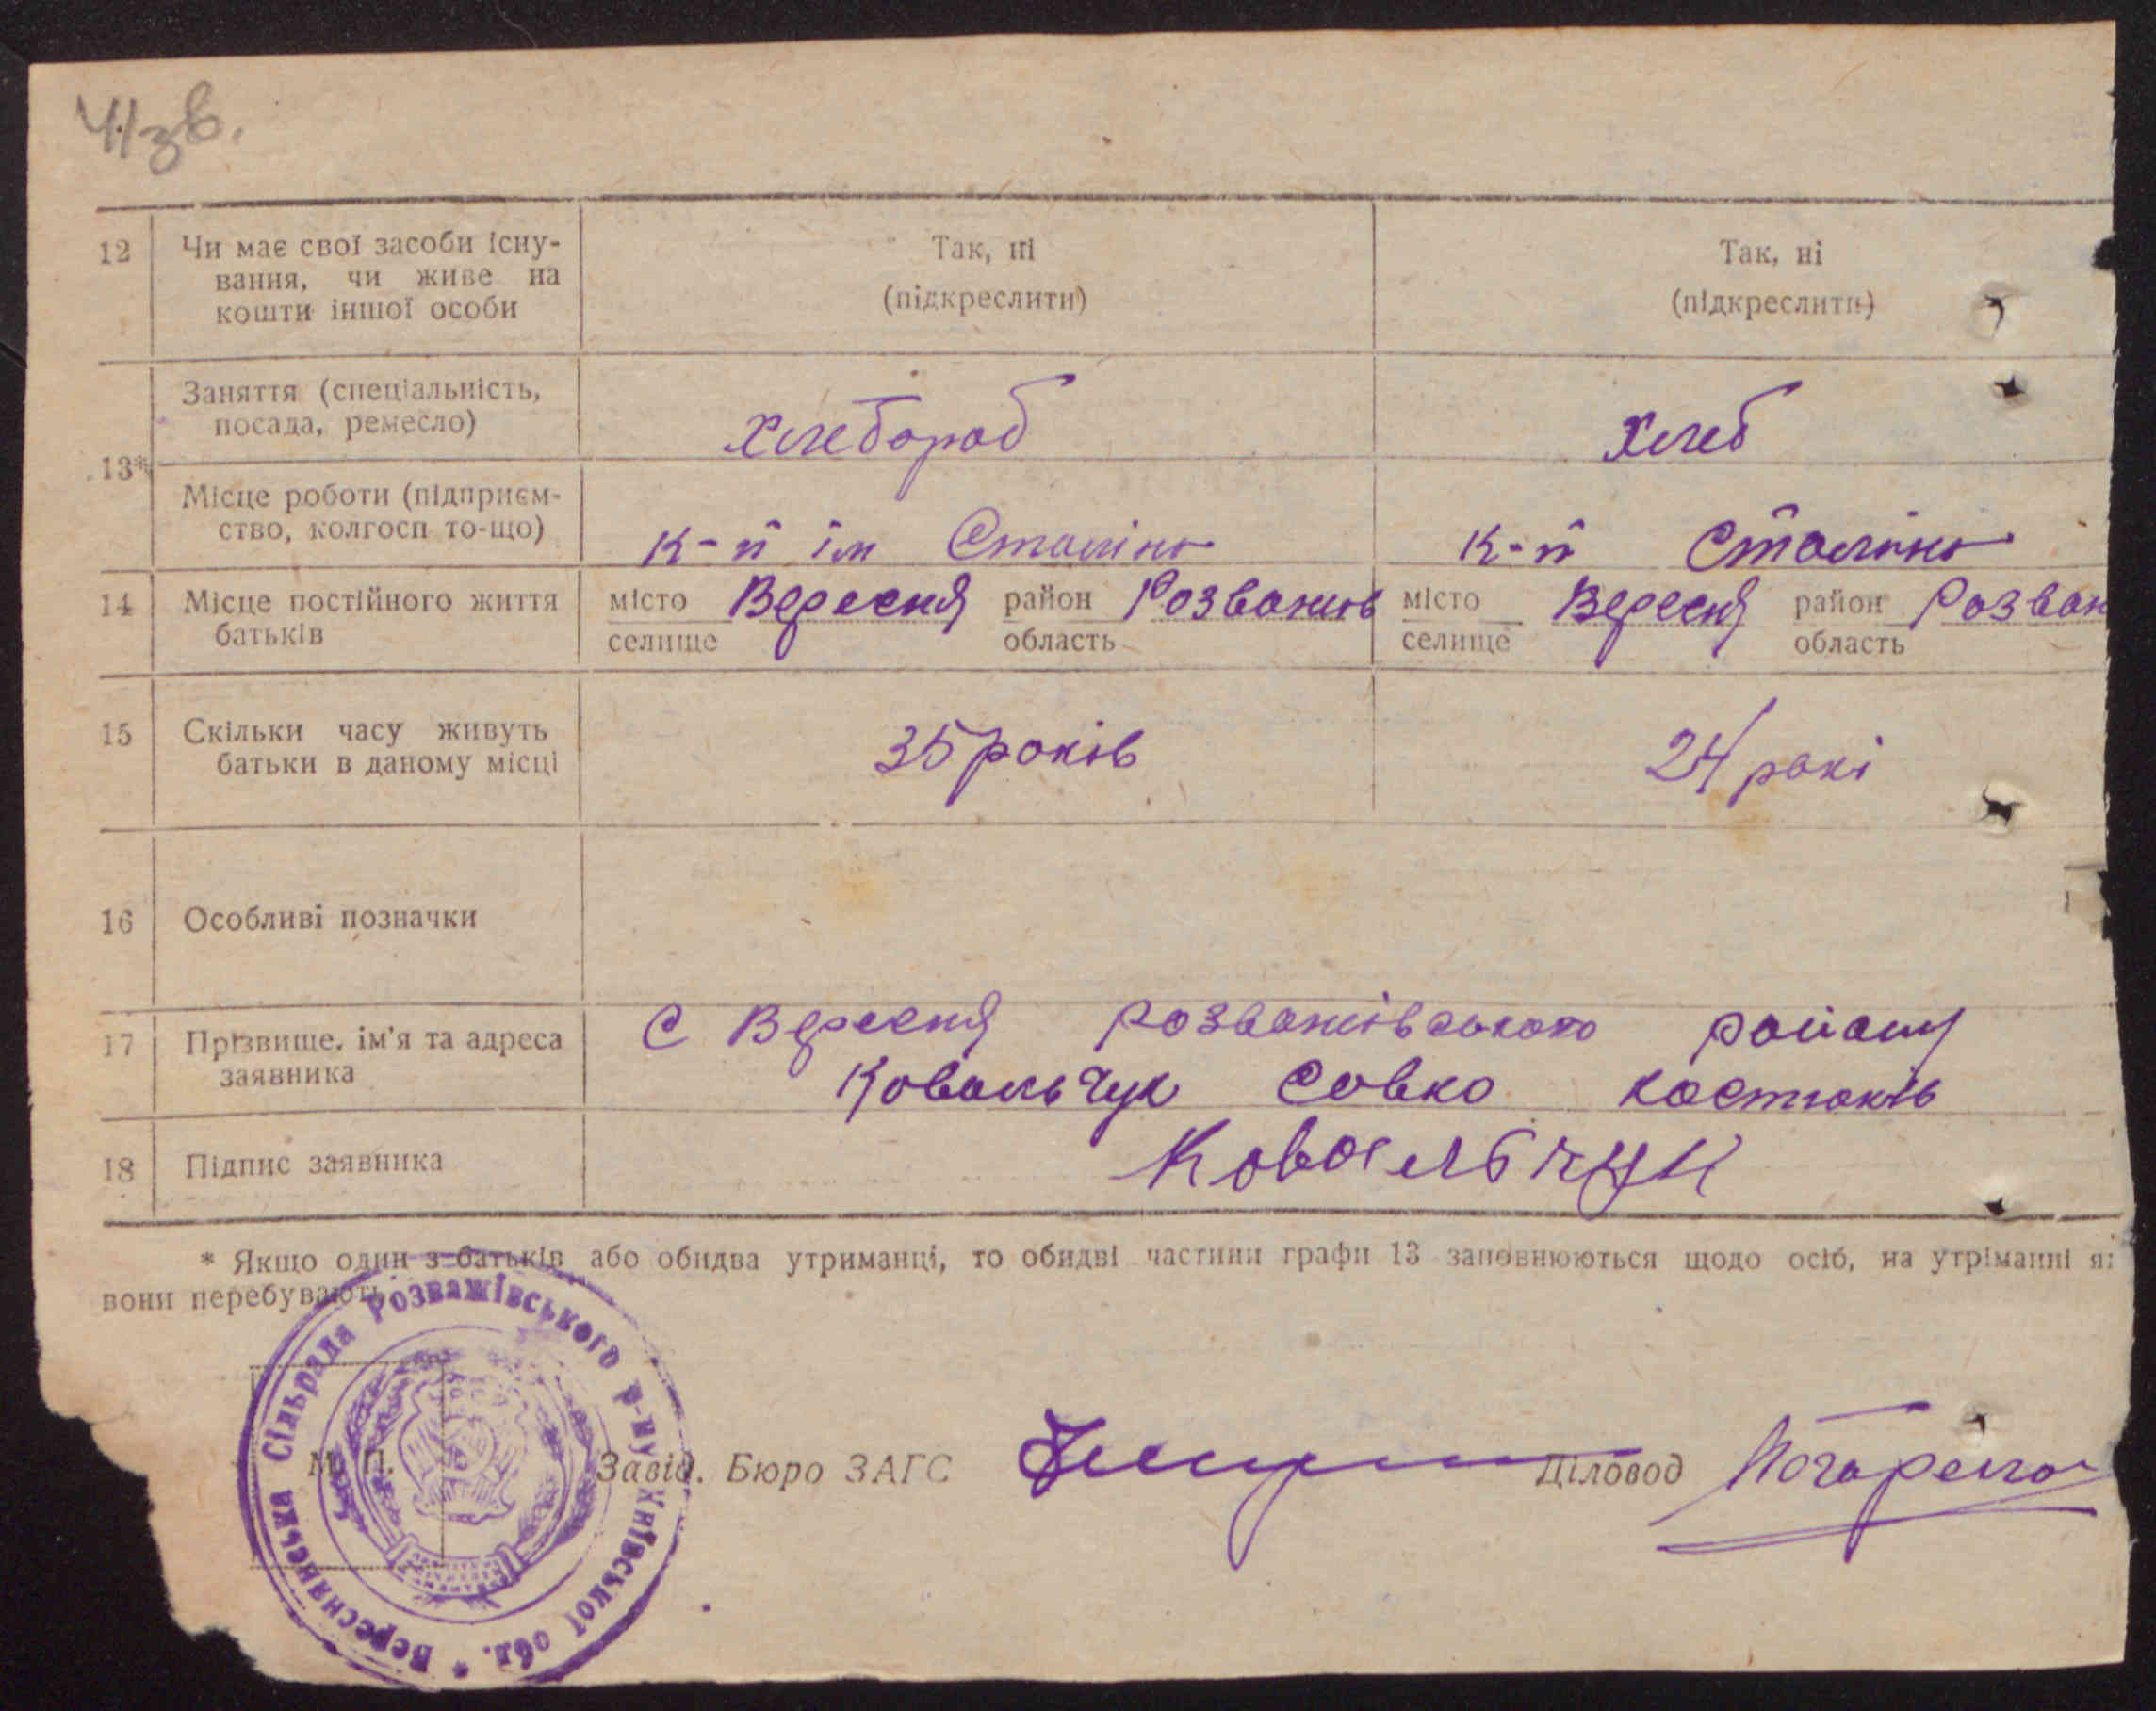 41зв.
12 Чи має свої засоби існу-
вання, чи живе на
кошти іншої особи
Так, ні
(підкреслити)
Так, ні
(підкреслити)
13*
Заняття (спеціальність,
посада, ремесло)
Хлебороб
Хлеб
Місце роботи (підприєм-
ство, колгосп то-що)
к-п ім Сталіна
к-п Сталіна
14 Місце постійного життя
батьків
місто Вересня район Розважів
селище область
місто Вересня район Розваж
селище область
15 Скільки часу живуть
батьки в даному місці
35 років
24 рокі
16 Особливі позначки
17 Прізвище, ім'я та адреса
заявника
С Вересня розважівського району
Ковальчук Совко
18 Підпис заявника
Ковальчук
* Якщо один з батьків або обидва утриманці, то обидві частини графи 13 заповнюються щодо осіб, на утріманні я
вони перебувають.
Вереснянська Сільрада Розважівського р-ну Київської обл. *
М. П.
Завід. Бюро ЗАГС
Діловод